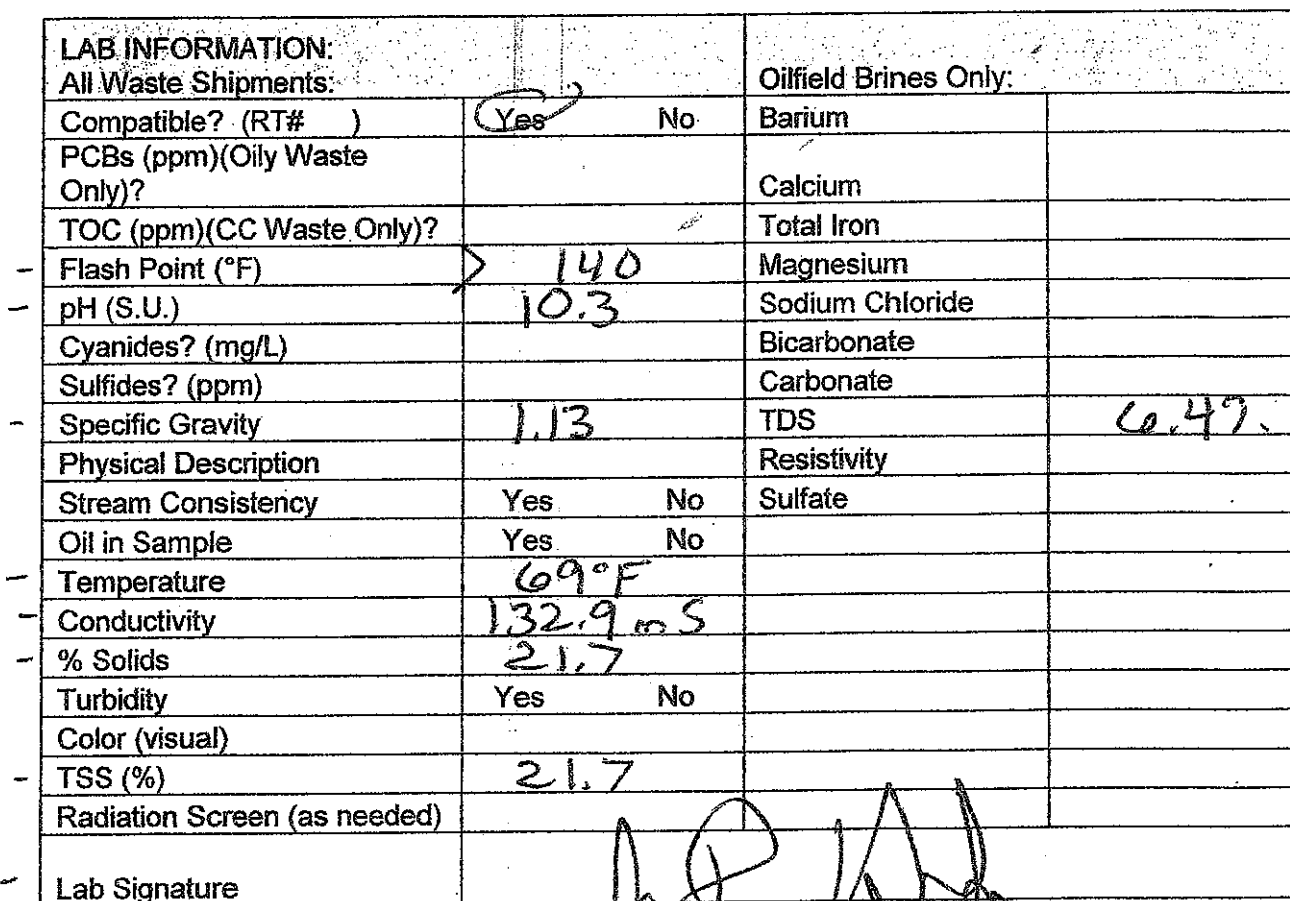 LAB INFORMATION:
All Waste Shipments: Oilfield Brines Only:
Compatible? (RT# ) Yes No Barium
PCBs (ppm)(Oily Waste
Only)? Calcium
TOC (ppm)(CC Waste Only)? Total Iron
- Flash Point (°F) > 140 Magnesium
- pH (S.U.) 10.3 Sodium Chloride
Cyanides? (mg/L) Bicarbonate
Sulfides? (ppm) Carbonate
- Specific Gravity 1.13 TDS
Physical Description Resistivity
Stream Consistency Yes No Sulfate
Oil in Sample Yes No
- Temperature 69°F
- Conductivity 132.9 mS
- % Solids 21.7
Turbidity Yes No
Color (visual)
- TSS (%) 21.7
Radiation Screen (as needed)
- Lab Signature